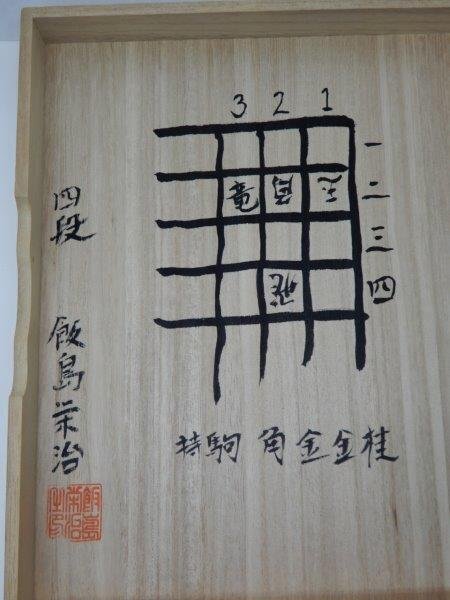 3 2 1
一
二
三
四
竜 玉
飛
持駒 角金金桂
四段 飯島栄治
飯島栄治之印